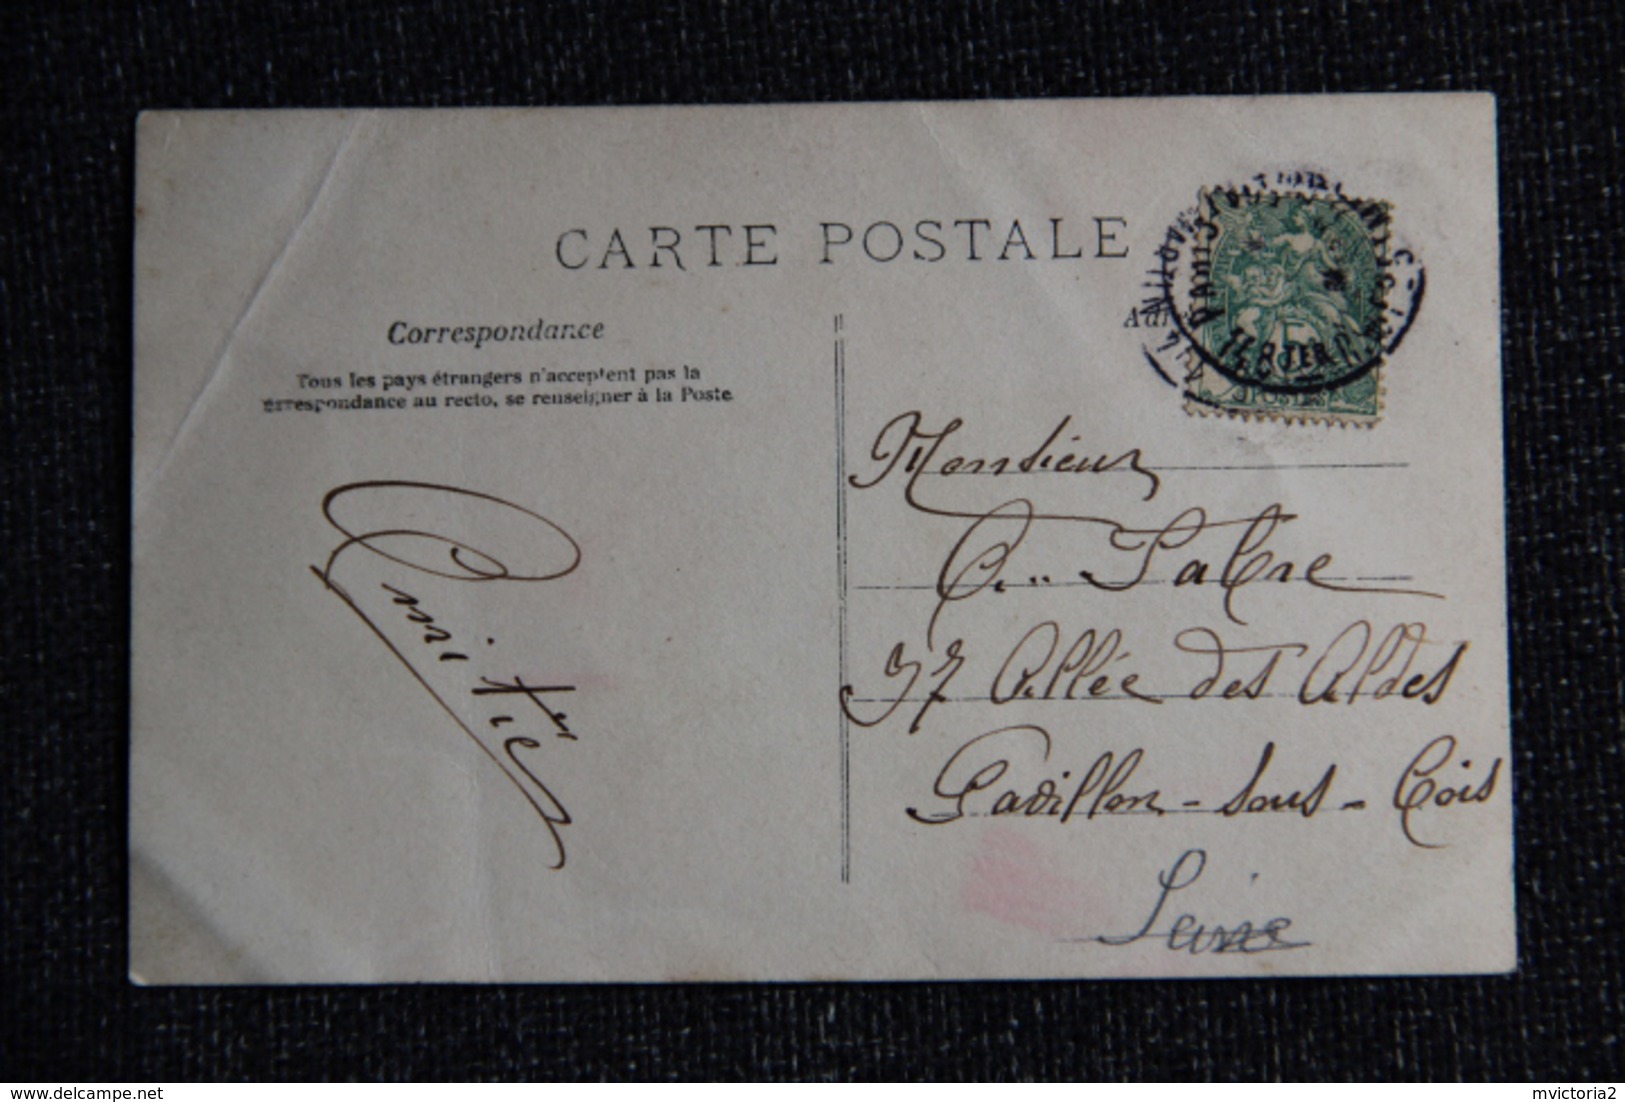 CARTE POSTALE
Correspondance
Tous les pays étrangers n'acceptent pas la
correspondance au recto, se renseigner à la Poste
Amitiés
Monsieur
A. Fabre
37 Allée des Aldes
Pavillon-sous-Bois
Seine
mvictoria2